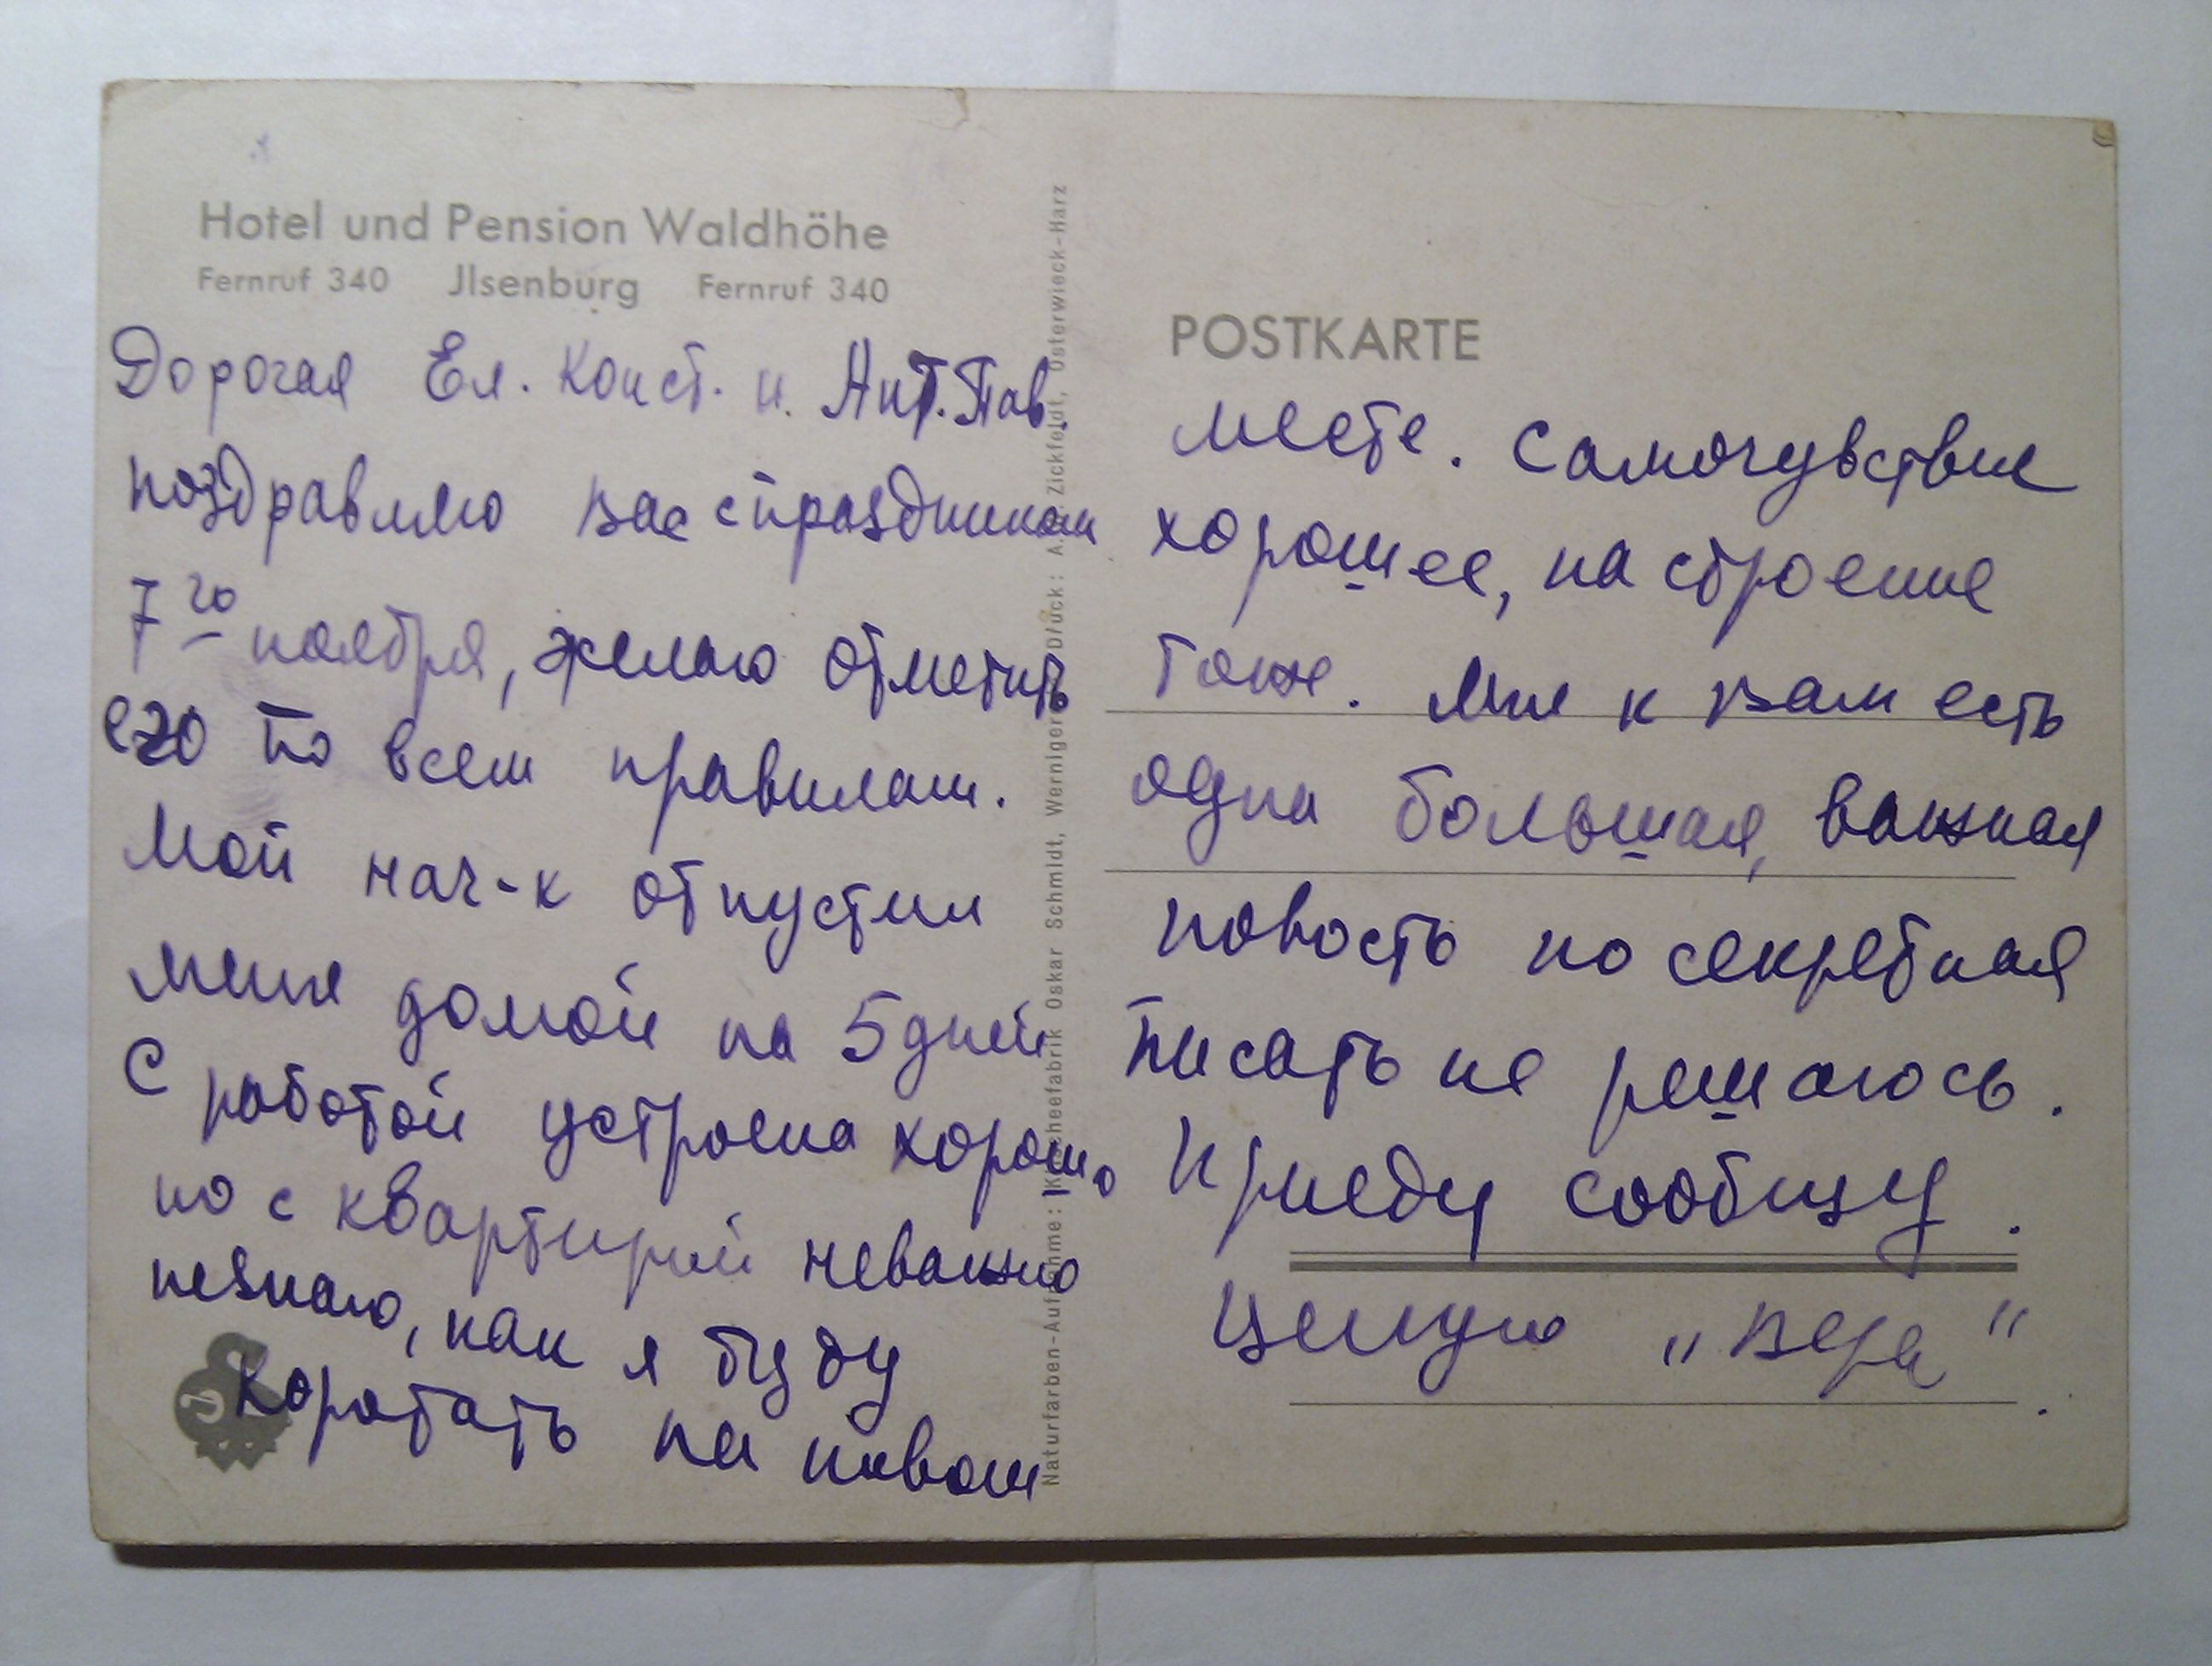 Hotel und Pension Waldhöhe
Fernruf 340 Jlsenburg Fernruf 340
Дорогая Ел. Конст. и Ант. Пав.
поздравляю вас с праздником
7го ноября, желаю отметить
его по всем правилам.
Мой нач-к отпустил
меня домой на 5 дней
С работой устроена хорошо
но с квартирой неважно
незнаю, как я буду
коротать на новом
Naturfarben-Aufnahme: Oskar Schmidt, Wernigerode Druck: A. W. Zickfeldt, Osterwieck-Harz
POSTKARTE
месте. Самочувствие
хорошее, настроение
тоже. Мня к вам есть
одна большая, важная
новость но секретная
писать не решаюсь.
Приеду сообщу.
Целую „Вера“.